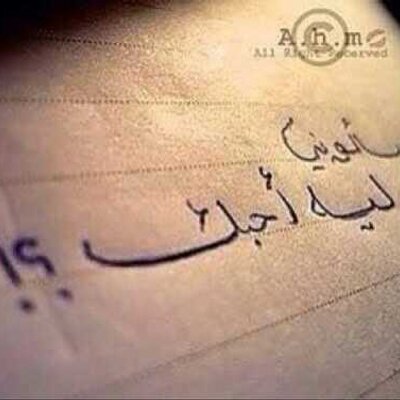 A.h.m
All Right Reserved
سألوني
ليه أحبك ؟!